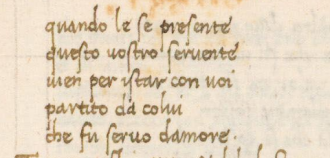 quando le se presente
questo vostro servente
uien per istar con voi
partito da colui
che fu seruo damore.